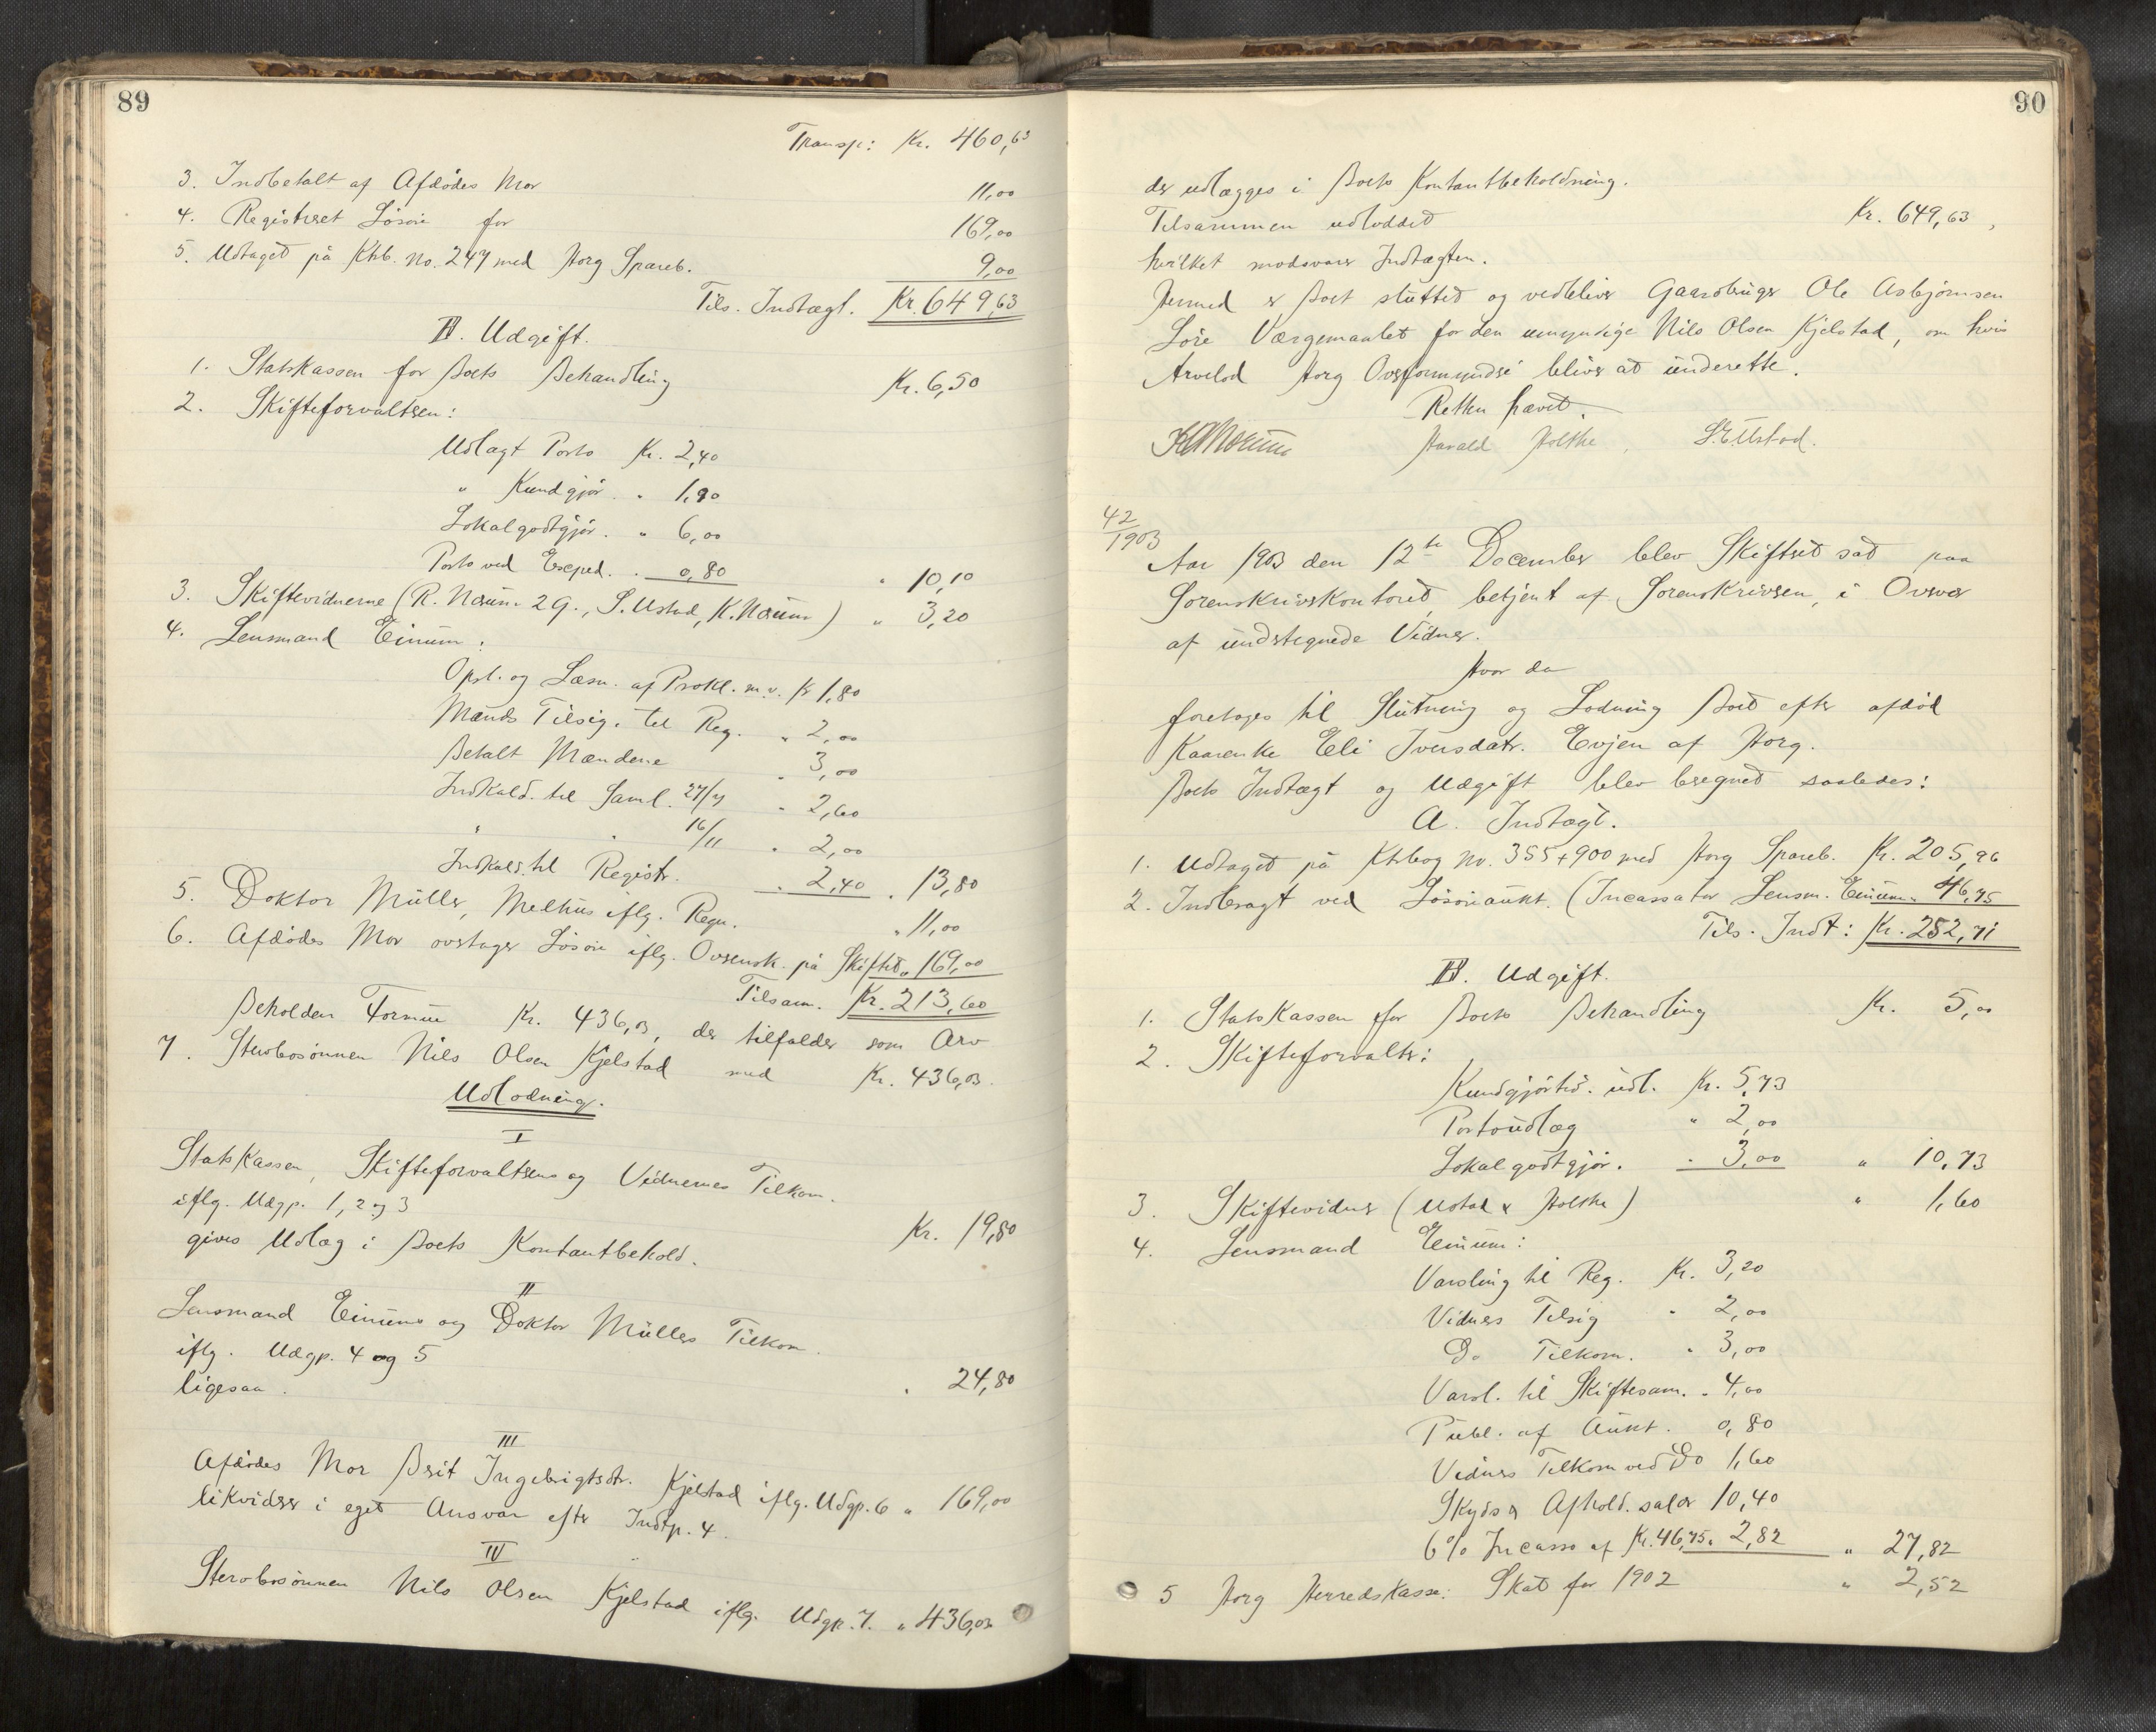 89
Transp: Kr. 460,63
3. Indbetalt af Afdødes Mor 11,00
4. Registreret Løsøre for 169,00
5. Udtaget på Ktb. no. 247 med Horg Spareb. 9,00
Tils. Indtægt. Kr. 649,63
B. Udgift.
1. Statskassen for Boets Behandling Kr. 6,50
2. Skifteforvalteren:
Udlagt Porto Kr. 2,40
" Kundgjør. " 1,90
Lokalgodtgjør. " 6,00
Porto ved Exped. " 0,80 " 10,10
3. Skiftevidnerne (R. Nærum 2 G., S. Ustad, K. Nærum) " 3,20
4. Lensmand Einum:
Opsl. og Læsn. af Prokl. m.v. Kr 1,80
Mænds Tilsig. til Reg. " 2,00
Betalt Mændene " 3,00
Indkald. til Saml. 27/7 " 2,60
" " 16/11 " 2,00
Indkald. til Registr. " 2,40 " 13,80
5. Doktor Müller, Melhus iflg. Regn. " 11,00
6. Afdødes Mor overtager Løsøre iflg. Overensk. på Skiftet " 169,00
Tilsam. Kr. 213,60
Beholden Formue Kr. 436,03, der tilfalder som Arv
7. Stervbosønnen Nils Olsen Kjelstad med Kr. 436,03.
Udlodning.
I
Statskassen, Skifteforvalterens og Vidnernes Tilkom.
iflg. Udgp. 1, 2 og 3
gives Udlæg i Boets Kontantbehold. Kr. 19,80
II
Lensmand Einums og Doktor Müllers Tilkom.
iflg. Udgp. 4 og 5
ligesaa. " 24,80
III
Afdødes Mor Brit Ingebrigtsdtr. Kjelstad iflg. Udgp. 6 " 169,00
likviderer i eget Ansvar efter Indtp. 4.
IV
Stervbosønnen Nils Olsen Kjelstad iflg. Udgp. 7. " 436,03
90
der udlægges i Boets Kontantbeholdning.
Tilsammen udloddet Kr. 649,63,
hvilket modsvarer Indtægten.
Hermed er Boet sluttet og vedbliver Gaardbruger Ole Asbjørnsen
Løre Værgemaalet for den umyndige Nils Olsen Kjelstad, om hvis
Arvelod Horg Overformynderi bliver at underette.
Retten hævet.
Harald Holthe, S. E. Ustad.
42/1903
Aar 1903 den 12te December blev Skifteret sat paa
Sorenskriverkontoret, betjent af Sorenskriveren, i Overvær
af undertegnede Vidner.
Hvor da
foretages til Slutning og Lodning Boet efter afdød
Kaarenke Eli Iversdatr. Evjen af Horg.
Boets Indtægt og Udgift blev beregnet saaledes:
A. Indtægt.
1. Udtaget på Ktrbog no. 355 + 900 med Horg Spareb. Kr. 205,96
2. Indbragt ved Løsøreaukt. (Incassator Lensm. Einum " 46,75
Tils. Indt: Kr. 252,71
B. Udgift.
1. Statskassen for Boets Behandling Kr. 5,00
2. Skifteforvalter:
Kundgjørtid. udl. Kr. 5,73
Portoudlæg " 2,00
Lokalgodtgjør. " 3,00 " 10,73
3. Skiftevidner (Ustad & Holthe) " 1,60
4. Lensmand Einum:
Varsling til Reg. Kr. 3,20
Vidners Tilsig " 2,00
Do Tilkom. " 3,00
Varsl. til Skiftesam. " 4,00
Publ. af Aukt. 0,80
Vidners Tilkom ved Do 1,60
Skyds & Afhold. salær 10,40
6% Incasso af Kr. 46,75 " 2,82 " 27,82
5 Horg Herredskasse: Skat for 1902 " 2,52